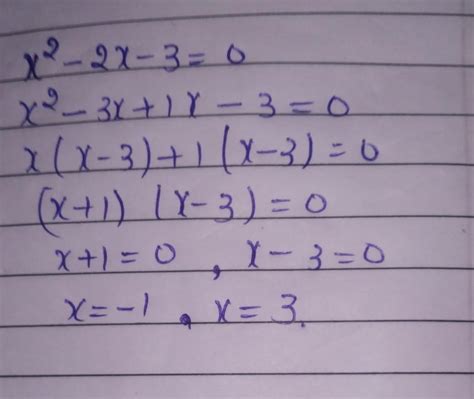 x² - 2x - 3 = 0
x² - 3x + 1x - 3 = 0
x(x-3) + 1(x-3) = 0
(x+1) (x-3) = 0
x+1 = 0 , x-3 = 0
x = -1 , x = 3.